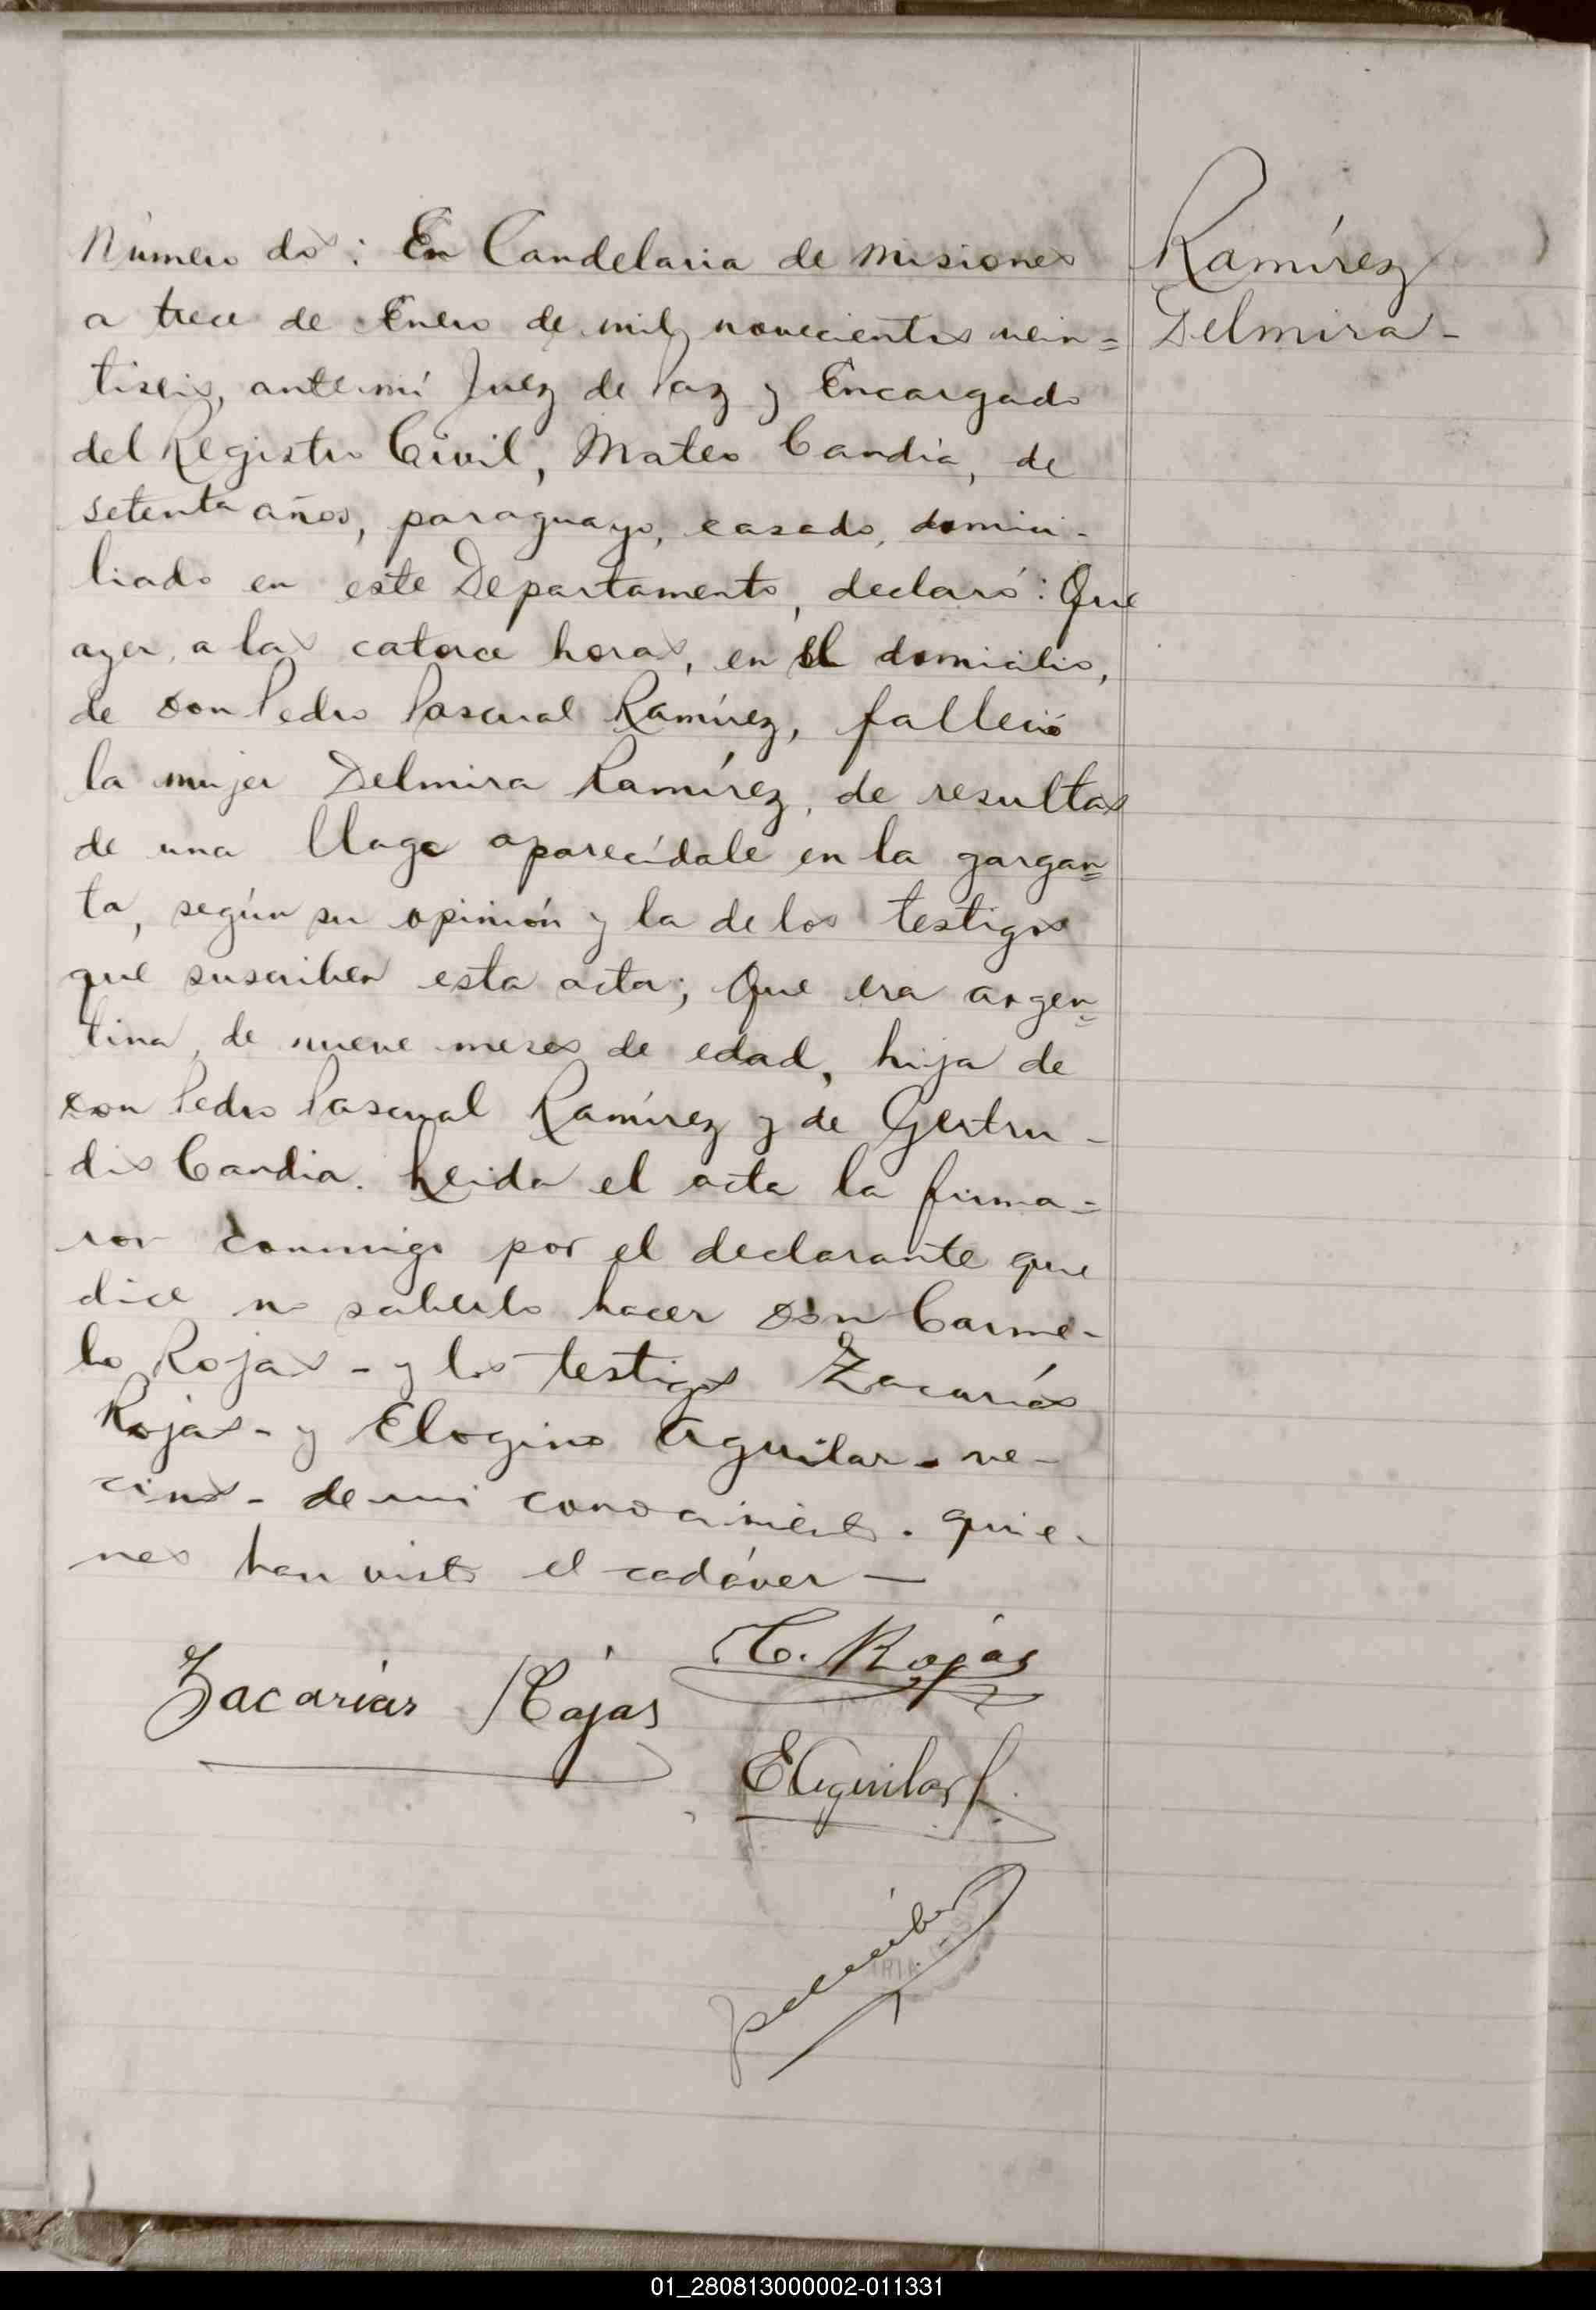 Número dos: En Candelaria de Misiones
a trece de Enero de mil novecientos vein=
tiseis, ante mí Juez de Paz y Encargado
del Registro Civil, Mateo Candia, de
setenta años, paraguayo, casado, domici-
liado en este Departamento, declaró: Que
ayer, a las catorce horas, en el domicilio,
de don Pedro Pascual Ramírez, falleció
la mujer Delmira Ramírez, de resultas
de una llaga aparecídale en la gargan=
ta, según su opinión y la de los testigos
que suscriben esta acta; Que era argen=
tina, de nueve meses de edad, hija de
don Pedro Pascual Ramírez y de Gertru-
dis Candia. Leida el acta la firma=
ron conmigo por el declarante que
dice no saberlo hacer don Carme-
lo Rojas - y los testigos Zacarías
Rojas - y Elogino Aguilar - ve-
cinos - de mi conocimiento - quie-
nes han visto el cadáver —
C. Rojas
Zacarías Rojas
EAguilar
Ramírez
Delmira -
01_280813000002-011331